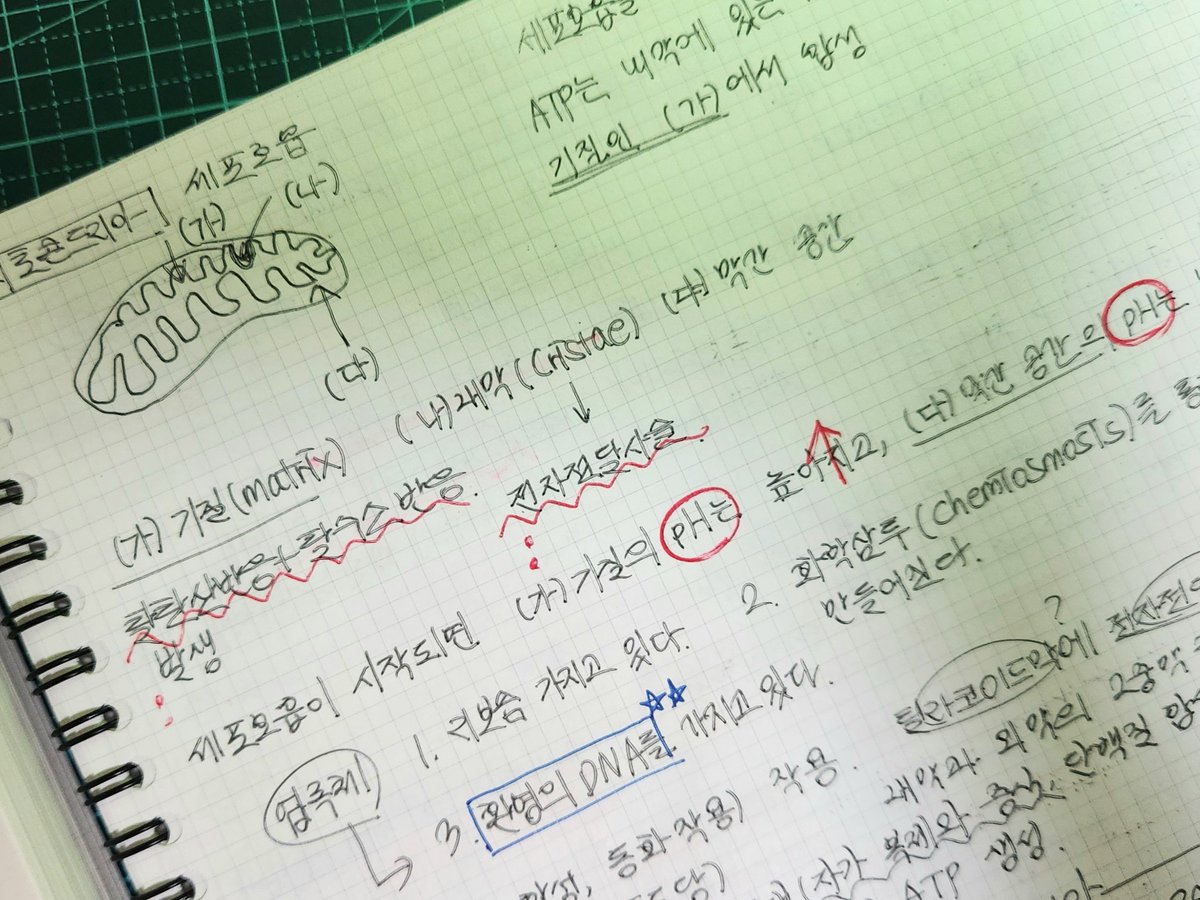 세포호흡을
ATP는 내막에 있는
기질인 (가)에서 합성
세포호흡
(가)
(나)
(다)
(가) 기질(matrix) (나) 내막(cristae) (다) 막간 공간
탈탄산반응, 탈수소 반응. 전자전달사슬
발생
세포호흡이 시작되면 (가) 기질의 pH는 높아지고, (다) 막간 공간의 pH는
1. 리보솜 가지고 있다. 2. 화학삼투(chemiosmosis)를
만들어진다.
엽록체
3. 환형의 DNA를 가지고 있다.
?
틸라코이드막에
동화작용) 작용. 내막과 외막의 2중막
(자가 복제와 증식, 단백질
ATP 생성.